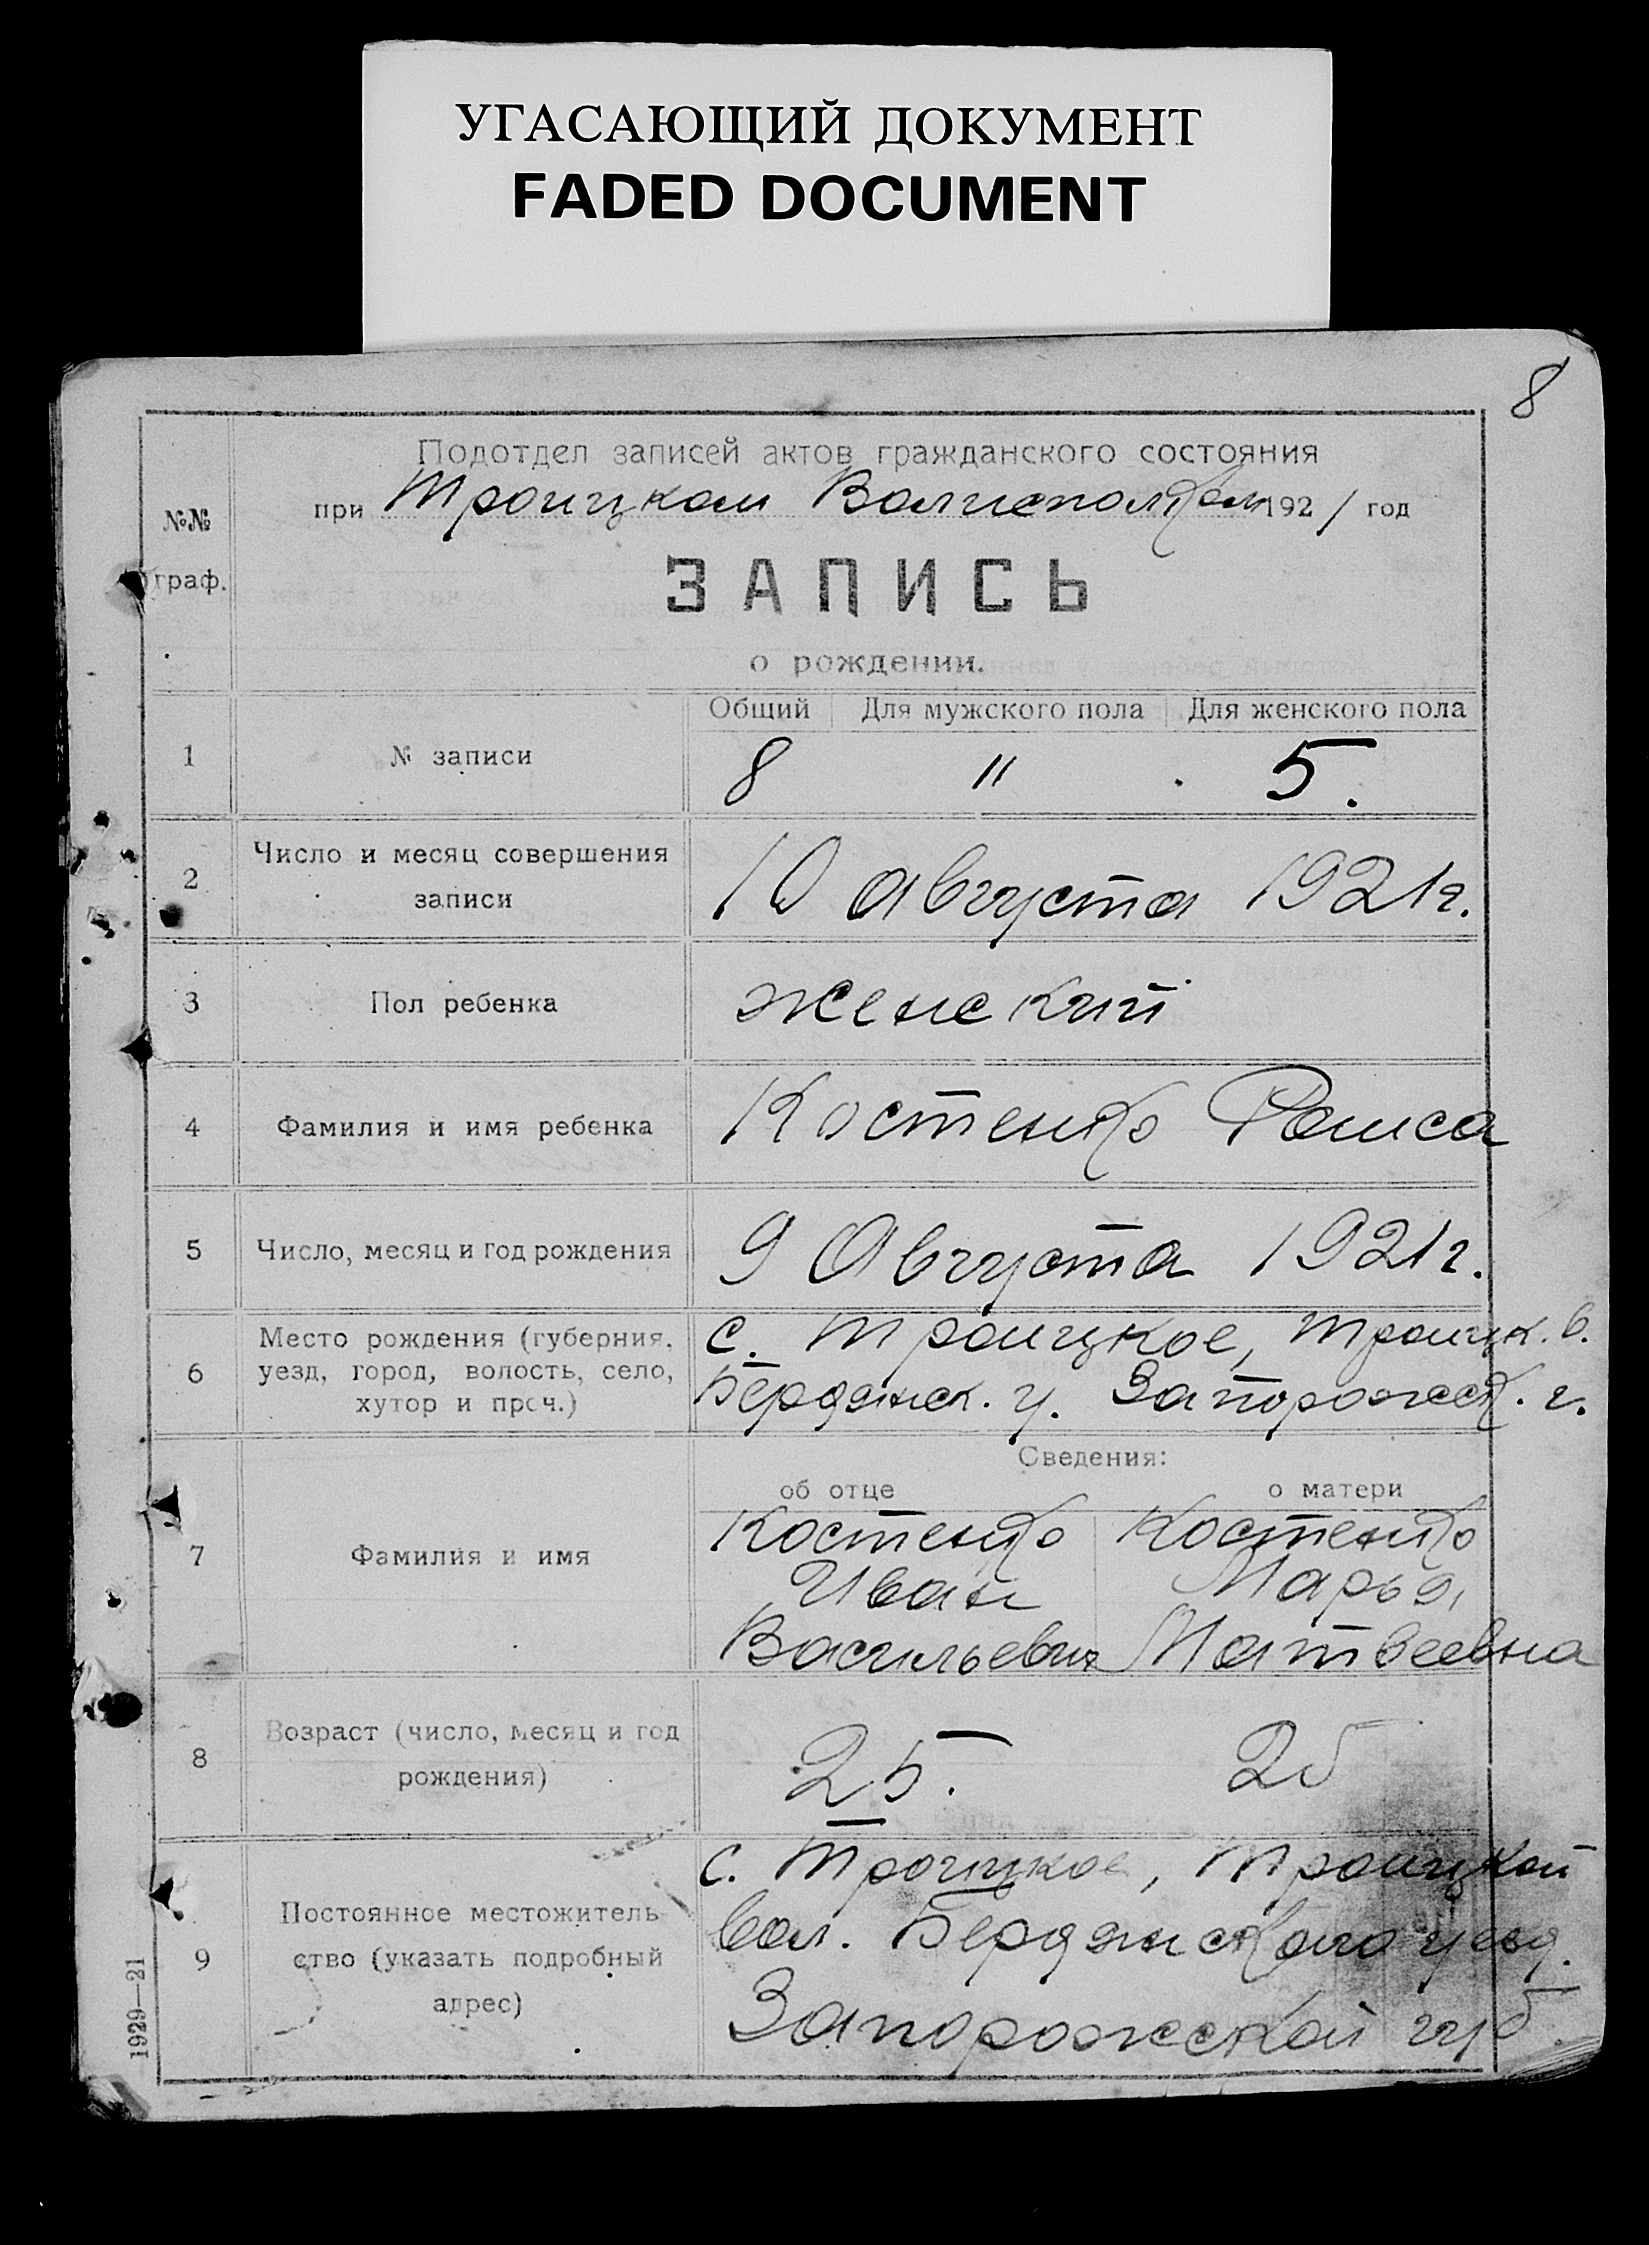 УГАСАЮЩИЙ ДОКУМЕНТ
FADED DOCUMENT
8
№№
граф.
Подотдел записей актов гражданского состояния
при Троицком Волисполком 1921 год
ЗАПИСЬ
о рождении.
Общий Для мужского пола Для женского пола
1 № записи 8 " 5.
2 Число и месяц совершения
записи
10 Августа 1921 г.
3 Пол ребенка женский
4 Фамилия и имя ребенка Костенко Раиса
5 Число, месяц и год рождения 9 Августа 1921 г.
6 Место рождения (губерния,
уезд, город, волость, село,
хутор и проч.)
с. Троицкое, Троицк. в.
Бердянск. у. Запорожск. г.
Сведения:
об отце о матери
7 Фамилия и имя
Костенко Костенко
Иван Марья
Васильевич Матвеевна
8 Возраст (число, месяц и год
рождения)
25. 25
9 Постоянное местожитель-
ство (указать подробный
адрес)
с. Троицкое, Троицкой
вол. Бердянского уезд.
Запорожской губ.
1929—21